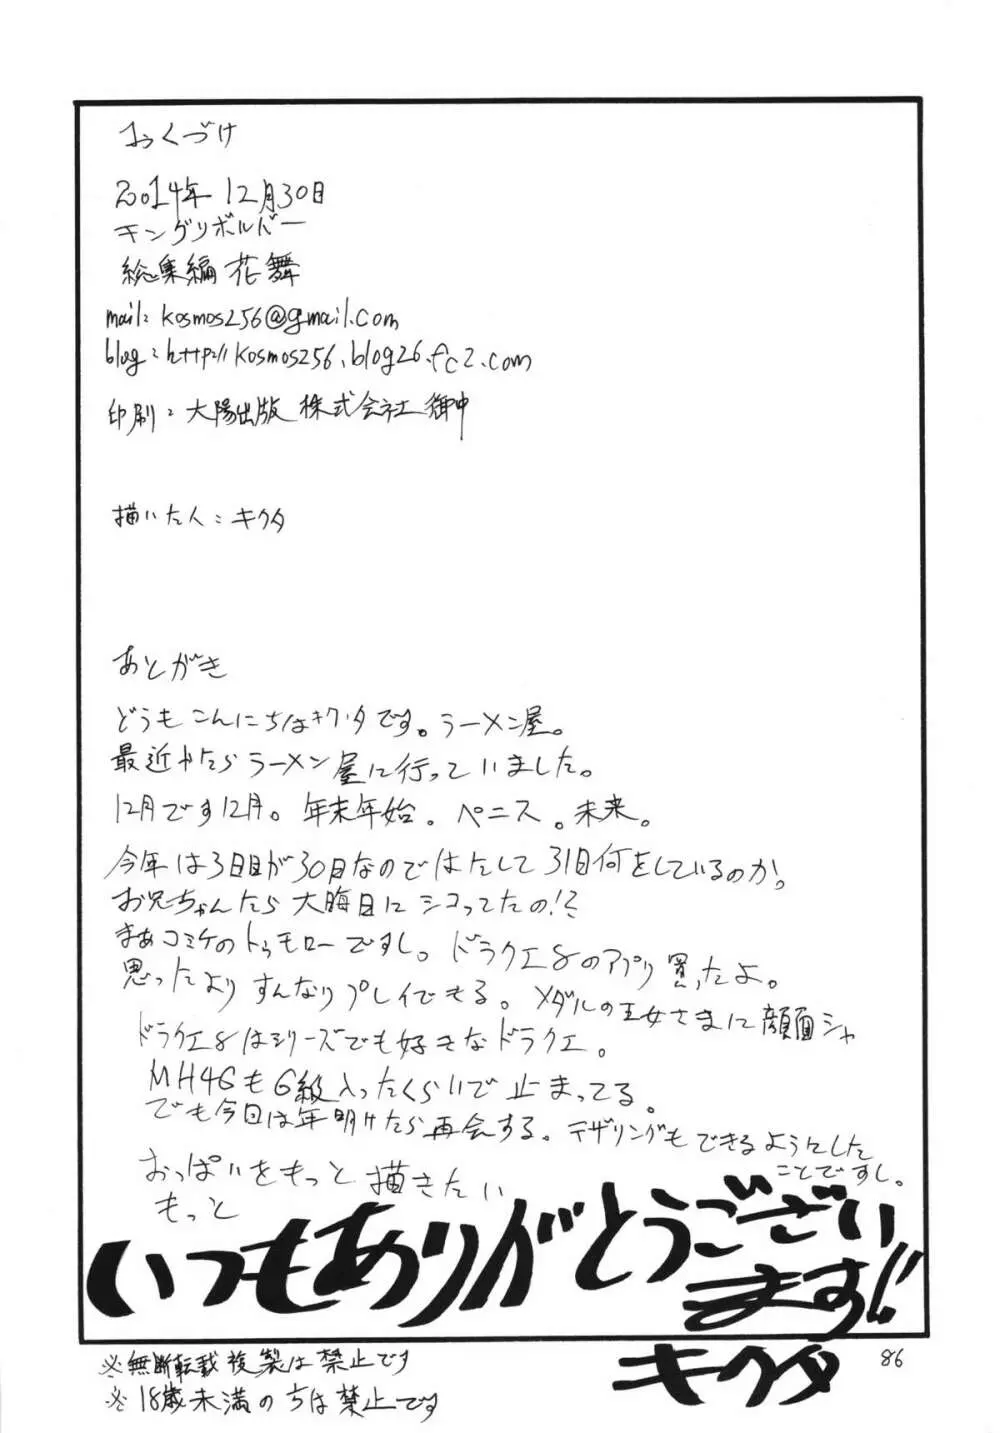 おくづけ
2014年12月30日
キングリボルバー
総集編 花舞
mail: kosmos256@gmail.com
blog: http://kosmos256.blog26.fc2.com
印刷: 大陽出版 株式会社 御中
描いた人: キクタ
あとがき
どうもこんにちはキクタです。ラーメン屋。
最近やたらラーメン屋に行っていました。
12月です12月。年末年始。ペニス。未来。
今年は3日目が30日なのではたして31日何をしているのか。
お兄ちゃんたら大晦日にシコってたの!?
まあコミケのトゥモローですし。ドラクエ8のアプリ買ったよ。
思ったよりすんなりプレイできる。メダルの王女さまに顔面シャ
ドラクエ8はシリーズでも好きなドラクエ。
MH4GもG級入ったくらいで止まってる。
でも今回は年明けたら再会する。テザリングもできるようにした
ことですし。
おっぱいをもっと描きたい
もっと
いつもありがとうござい
ます!!
キクタ
86
※無断転載複製は禁止です
※18歳未満のちは禁止です